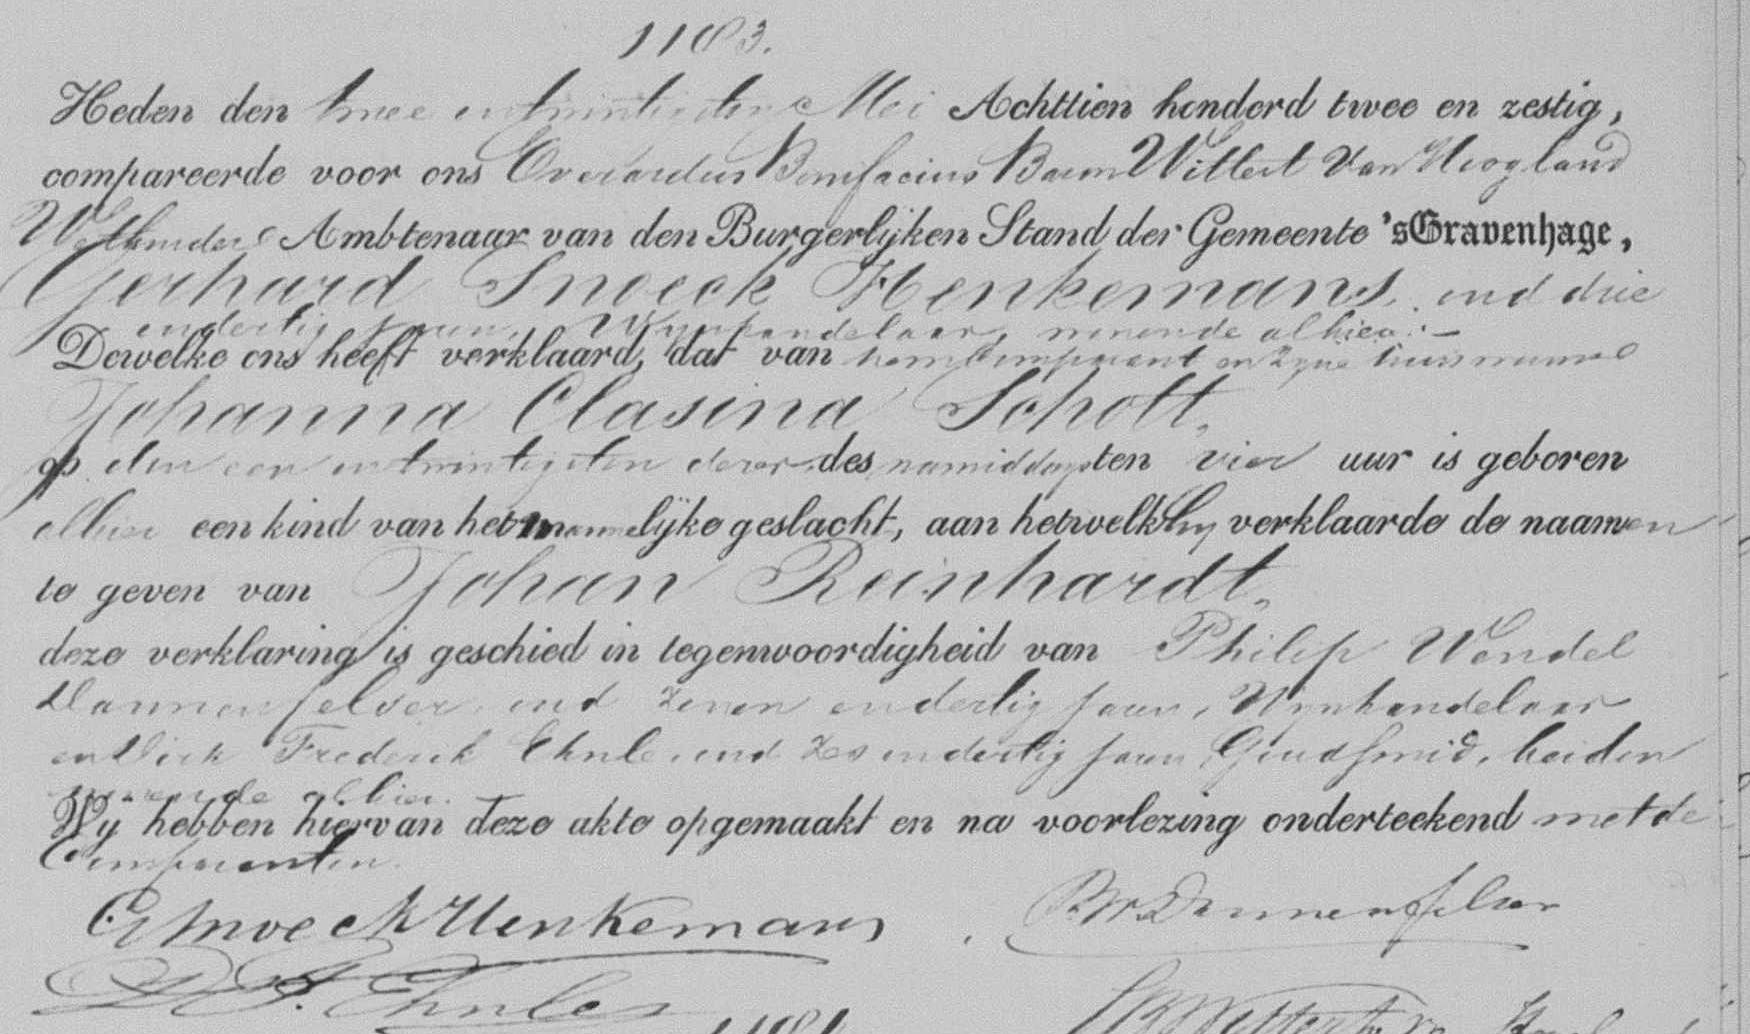 1183.
Heden den twee en twintigsten Mei Achttien honderd twee en zestig,
compareerde voor ons Everardus Bonifacius Baron Wittert van Hoogland
Wethouder Ambtenaar van den Burgerlijken Stand der Gemeente 'sGravenhage,
Gerhard Snoeck Henkemans, oud drie
en dertig jaren, Wijnhandelaar, wonende alhier. –
Dewelke ons heeft verklaard, dat van hem Comparant en zijne huisvrouw
Johanna Clasina Schott,
op den een en twintigsten dezer des namiddags ten vier uur is geboren
alhier een kind van het mannelijke geslacht, aan hetwelk hij verklaarde de naamen
te geven van Johan Reinhardt,
deze verklaring is geschied in tegenwoordigheid van Philip Wendel
Dannenfelser, oud zeven en dertig jaren, Wijnhandelaar
en Dirk Frederik Ehnle, oud zes en dertig jaren, Goudsmid, beiden
wonende alhier.
Wij hebben hiervan deze akte opgemaakt en na voorlezing onderteekend met de
Comparanten.
G Snoeck Henkemans
P.W. Dannenfelser
D F. Ehnle